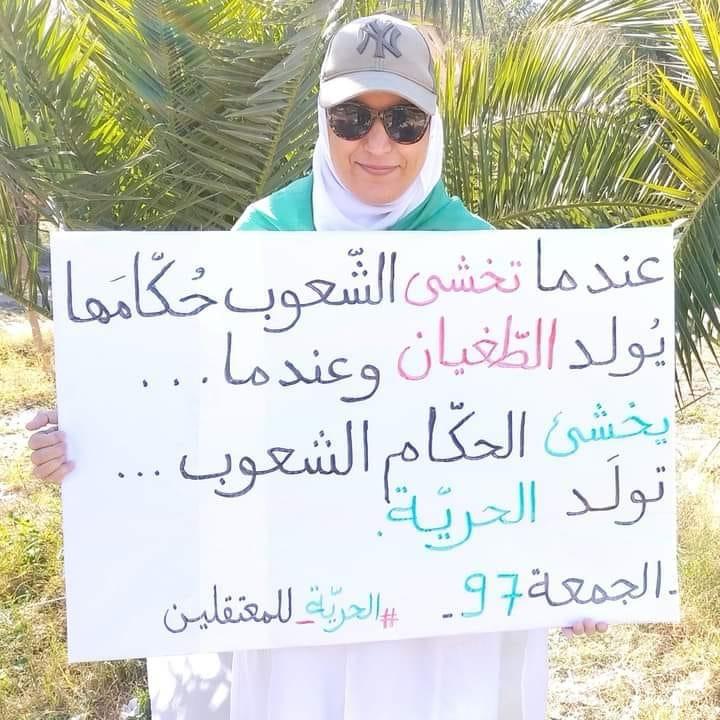 NY
عندما تخشى الشّعوب حُكّامَها
يُولد الطّغيان وعندما...
يخشى الحكّام الشعوب ...
تولَد الحريّة.
-الجمعة 97-
#الحريّة_للمعتقلين